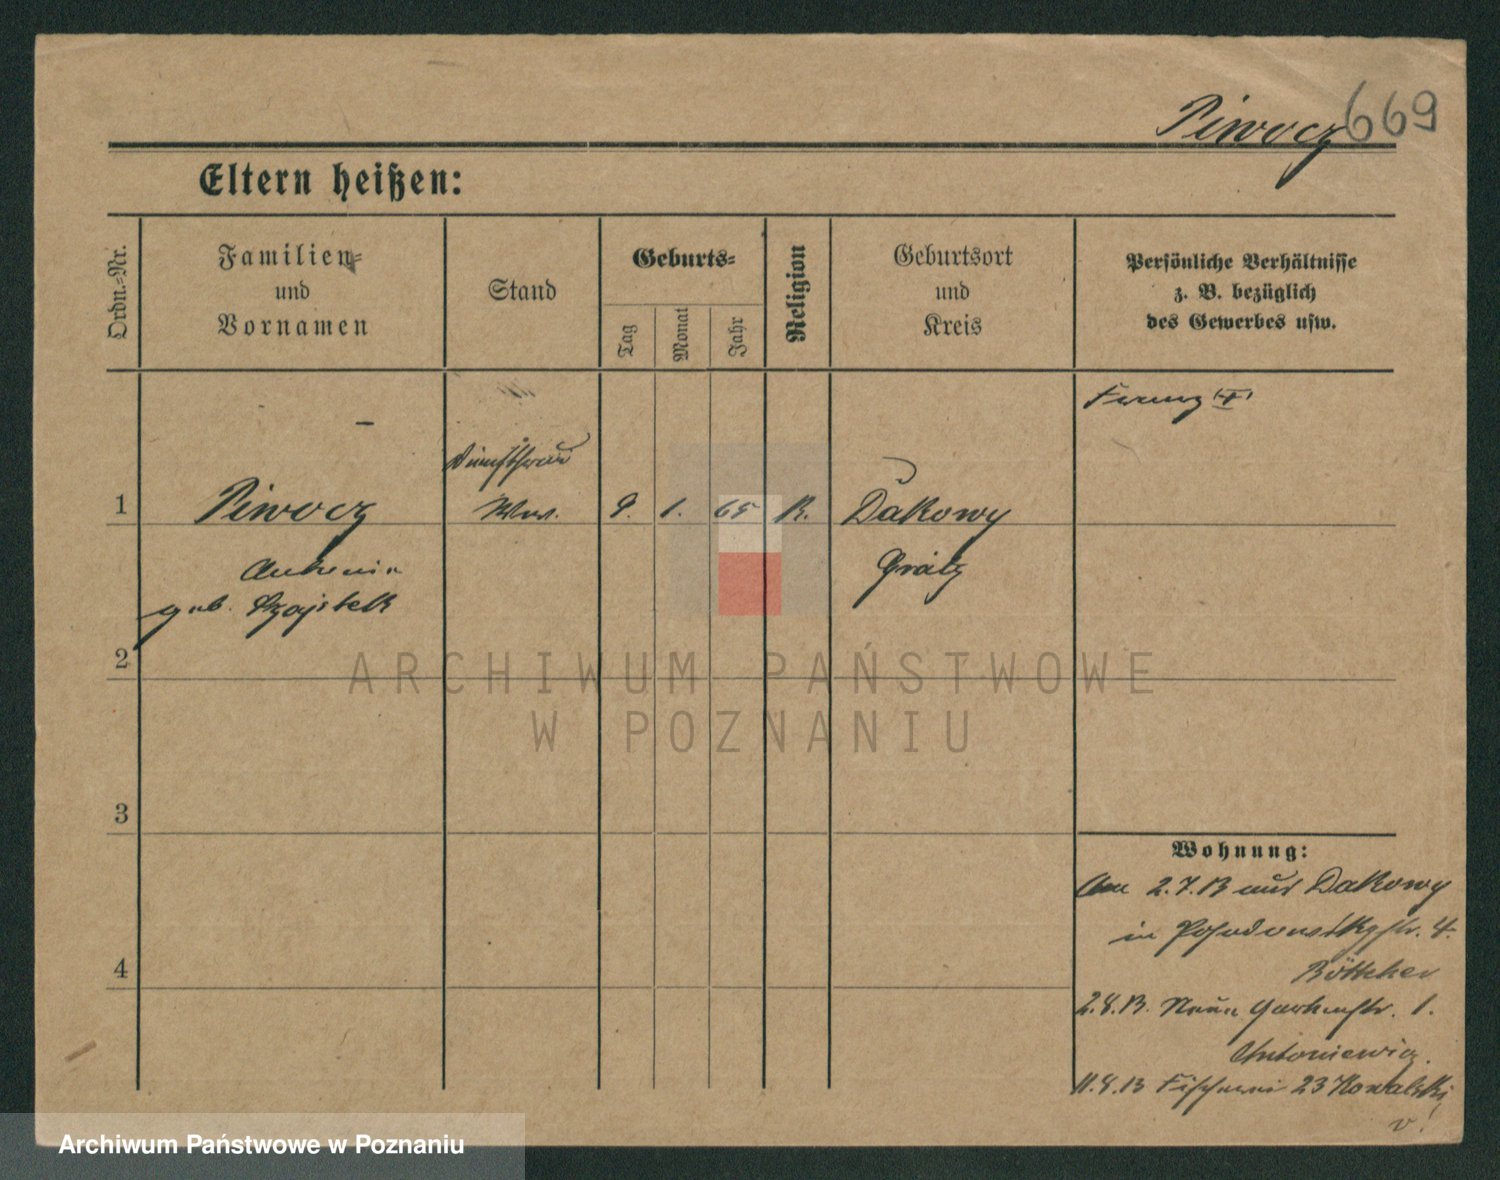 Piwocz 669
Eltern heißen:
Ordn.-Nr.
Familien-
und
Vornamen
Stand
Geburts-
Tag
Monat
Jahr
Religion
Geburtsort
und
Kreis
Persönliche Verhältnisse
z. B. bezüglich
des Gewerbes usw.
1
Piwocz
Antonia
geb.
Ww.
9.
1.
65
K.
Dakowy
Grätz
2
3
4
ARCHIWUM PAŃSTWOWE
W POZNANIU
Wohnung:
2.7.13 aus Dakowy
in 4.
Böttcher
2.8.13. Neue Gartenstr. 1.
Antoniewicz.
11.8.13 Fischerei 23 Kowalski
v!
Archiwum Państwowe w Poznaniu